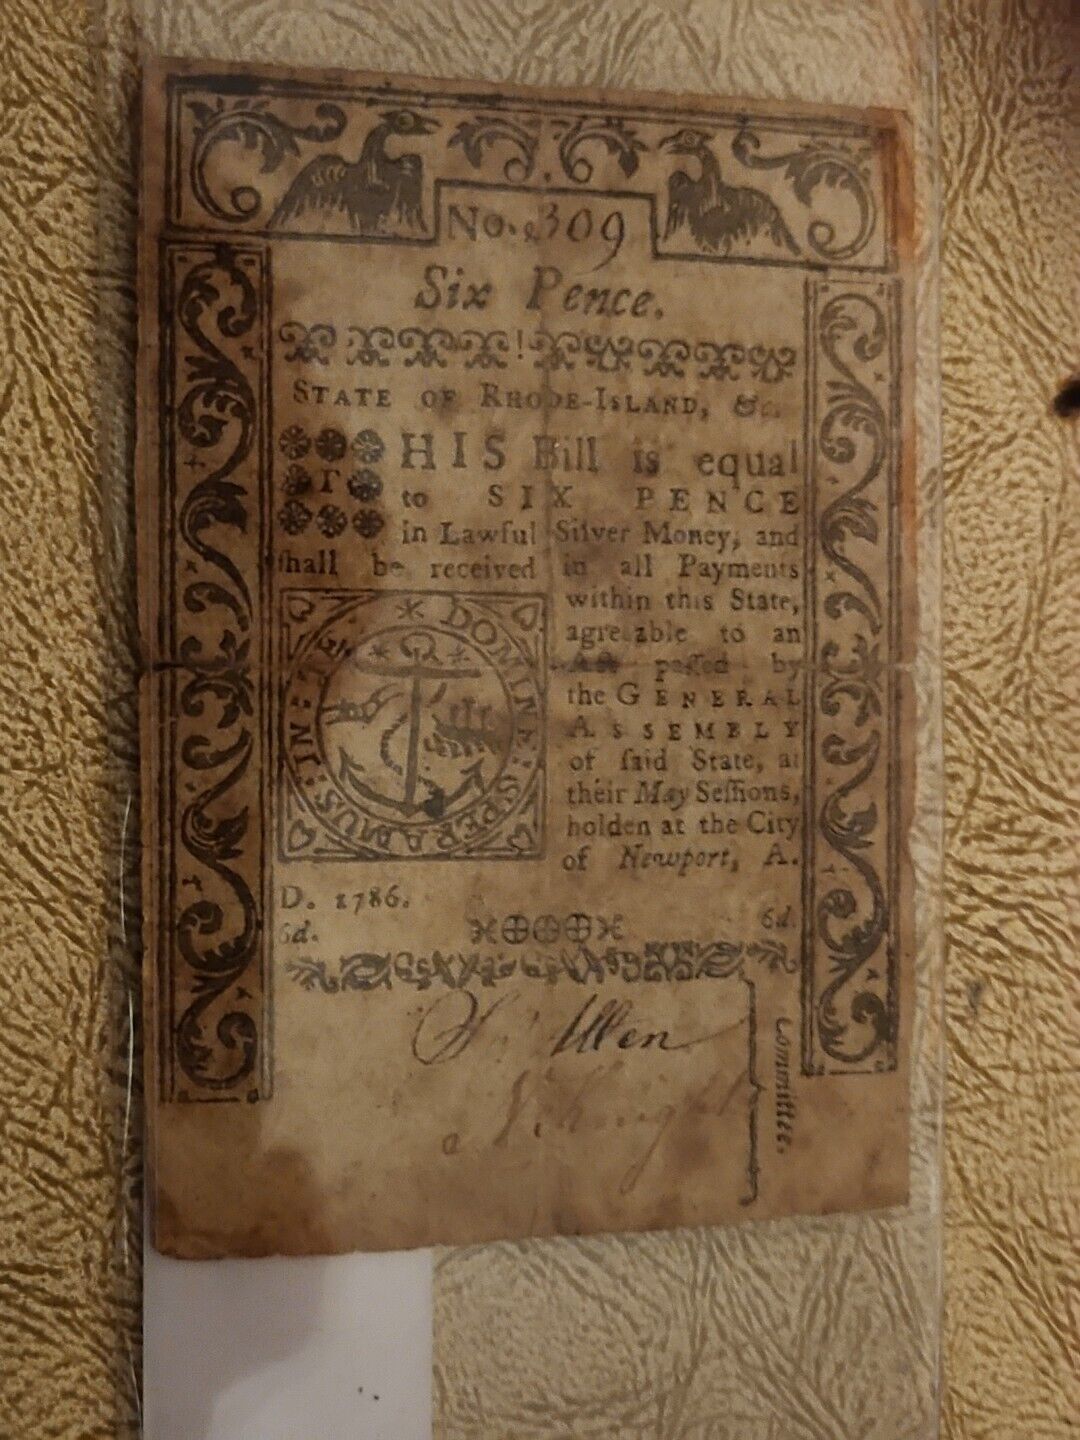 No. 2309
Six Pence.
STATE OF RHODE-ISLAND, &c.
THIS Bill is equal
to SIX PENCE
in Lawful Silver Money, and
shall be received in all Payments
within this State,
agreeable to an
Act passed by
the GENERAL
ASSEMBLY
of said State, at
their May Sessions,
holden at the City
of Newport, A.
D. 1786.
IN TE DOMINE SPERAMUS
6d. 6d.
S. Allen
N. Knight
Committee.